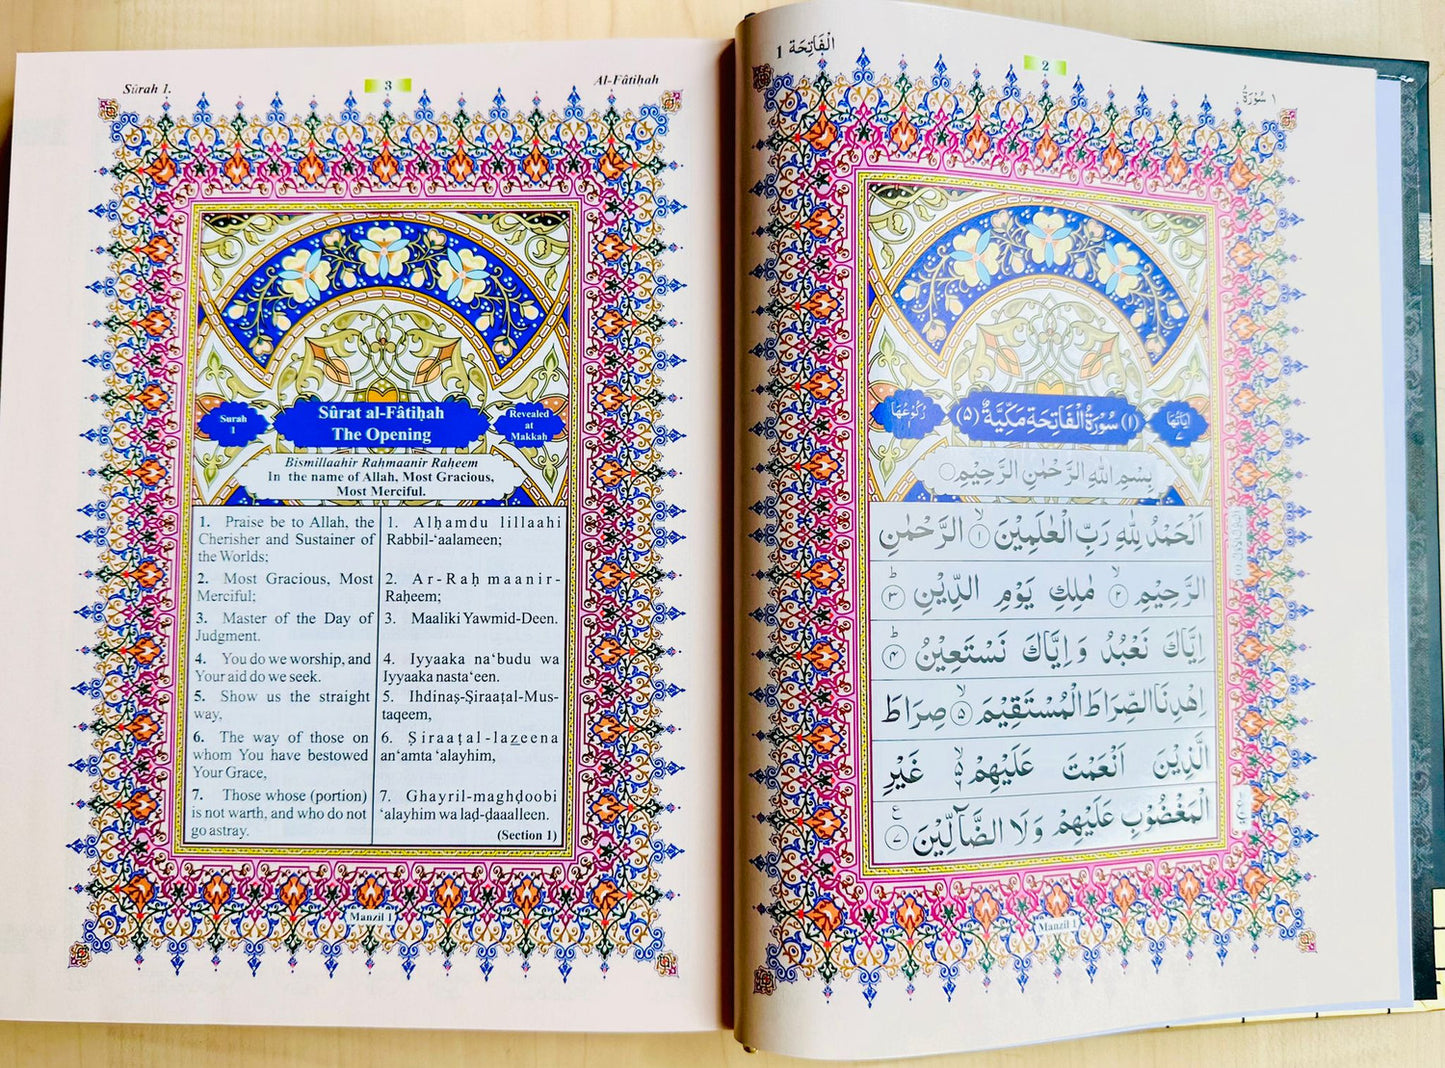 Sûrah 1.
3
Al-Fâtiḥah
Surah
1
Sûrat al-Fâtiḥah
The Opening
Revealed
at
Makkah
Bismillaahir Rahmaanir Raḥeem
In the name of Allah, Most Gracious,
Most Merciful.
1. Praise be to Allah, the
Cherisher and Sustainer of
the Worlds;
2. Most Gracious, Most
Merciful;
3. Master of the Day of
Judgment.
4. You do we worship, and
Your aid do we seek.
5. Show us the straight
way,
6. The way of those on
whom You have bestowed
Your Grace,
7. Those whose (portion)
is not warth, and who do not
go astray.
1. Alḥamdu lillaahi
Rabbil-‘aalameen;
2. Ar-Raḥmaanir-
Raḥeem;
3. Maaliki Yawmid-Deen.
4. Iyyaaka na‘budu wa
Iyyaaka nasta‘een.
5. Ihdinaṣ-Ṣiraaṭal-Mus-
taqeem,
6. Ṣiraaṭal-lazeena
an‘amta ‘alayhim,
7. Ghayril-maghḍoobi
‘alayhim wa laḍ-ḍaaalleen.
(Section 1)
Manzil 1
الْفَاتِحَة 1
2
سُوْرَةُ ١
اٰيَاتُهَا ٧
(١) سُوْرَةُ الْفَاتِحَةِ مَكِّيَّةٌ (٥)
رُكُوْعُهَا
بِسْمِ اللّٰهِ الرَّحْمٰنِ الرَّحِيْمِ
اَلْحَمْدُ لِلّٰهِ رَبِّ الْعٰلَمِيْنَ ۙ﴿١﴾ الرَّحْمٰنِ
الرَّحِيْمِ ۙ﴿٢﴾ مٰلِكِ يَوْمِ الدِّيْنِ ؕ﴿٣﴾
اِيَّاكَ نَعْبُدُ وَاِيَّاكَ نَسْتَعِيْنُ ؕ﴿٤﴾
اِهْدِنَا الصِّرَاطَ الْمُسْتَقِيْمَ ۙ﴿٥﴾ صِرَاطَ
الَّذِيْنَ اَنْعَمْتَ عَلَيْهِمْ ۙ۬ غَيْرِ
الْمَغْضُوْبِ عَلَيْهِمْ وَلَا الضَّآلِّيْنَ ﴿٧﴾ ع
Manzil 1